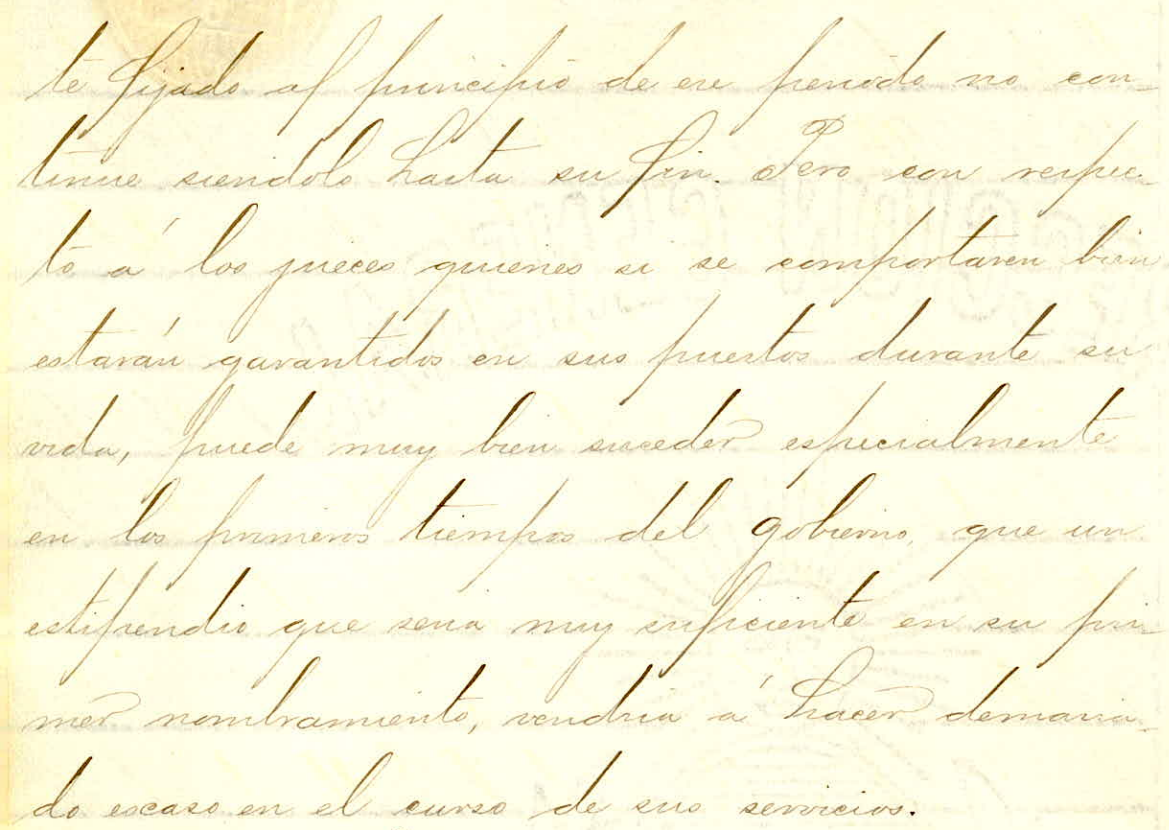 te fijado al principio de ese periodo no con-
tinue siendolo hasta su fin. Pero con respec-
to á los jueces quienes si se comportaren bien
estarán garantidos en sus puestos durante su
vida, puede muy bien suceder especialmente
en los primeros tiempos del gobierno, que un
estipendio que seria muy suficiente en su pri-
mer nombramiento, vendria á hacer demasia-
do escaso en el curso de sus servicios.